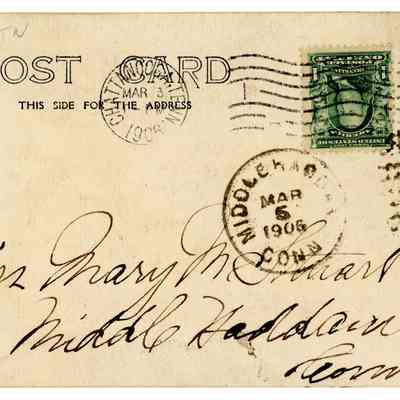 TN
POST CARD
THIS SIDE FOR THE ADDRESS
CHATTANOOGA, TENN.
MAR 3
1906
MIDDLE HADDAM
MAR
5
1906
CONN
Miss Mary M. Stuart
Middle Haddam
Conn